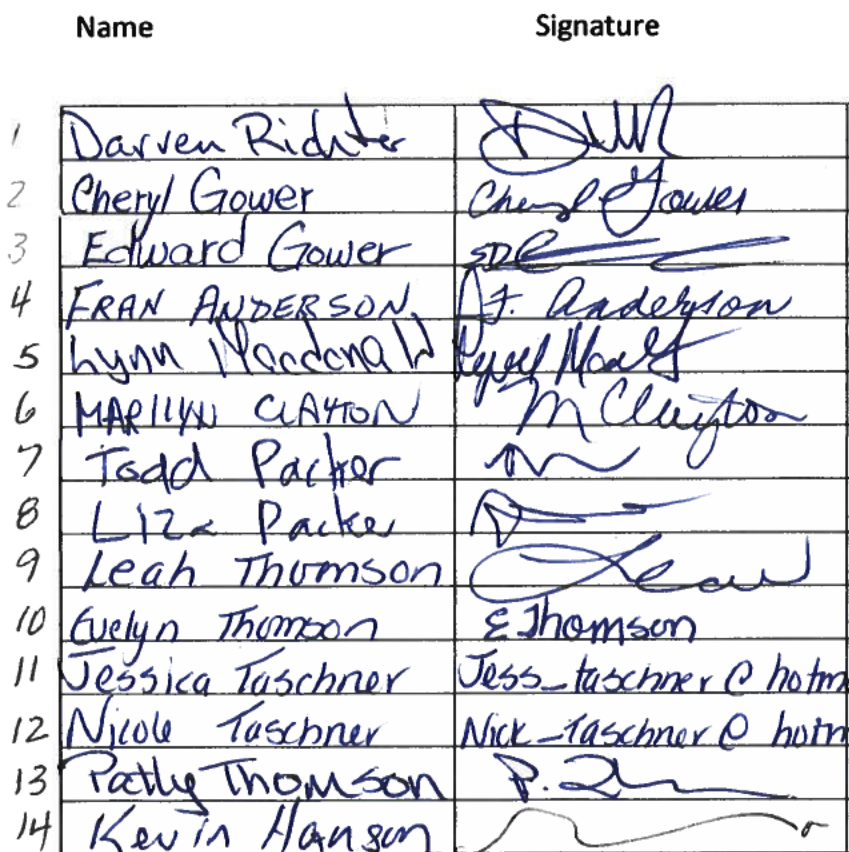 Name Signature
1 Darren Richter
2 Cheryl Gower Cheryl Gower
3 Edward Gower
4 FRAN ANDERSON F. Anderson
5 Lynn Macdonald
6 MARILYN CLAYTON M Clayton
7 Todd Packer
8 Liza Packer
9 Leah Thomson Leah
10 Evelyn Thomson E Thomson
11 Jessica Taschner Jess_taschner@hotm
12 Nicole Taschner Nick_Taschner@hotm
13 Patty Thomson
14 Kevin Hanson